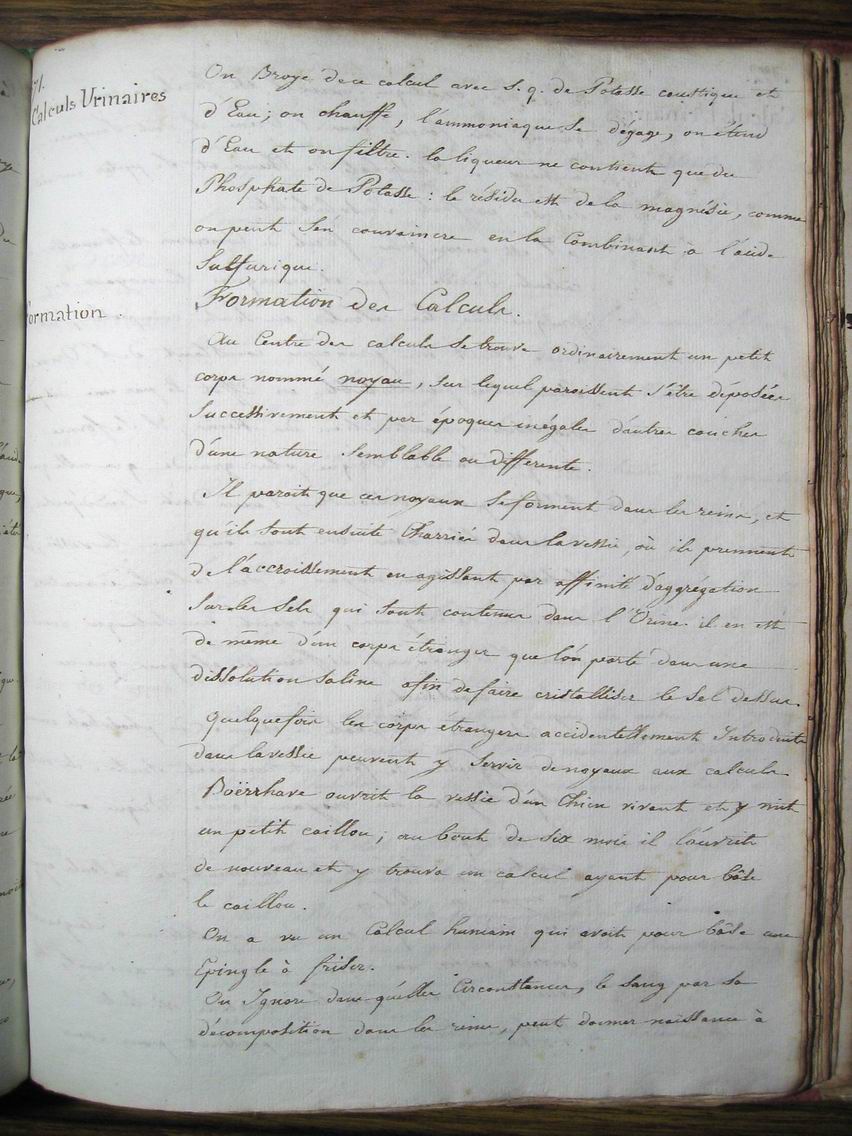 71.
Calculs Urinaires
On Broye de ce calcul avec s. q. de Potasse caustique et
d'Eau; on chauffe, l'ammoniaque se dégage, on étend
d'Eau et on filtre. la liqueur ne contient que du
Phosphate de Potasse : le résidu est de la magnésie, comme
on peut s'en convaincre en la Combinant à l'acide
Sulfurique.
Formation
Formation des Calculs.
Au Centre des calculs se trouve ordinairement un petit
corps nommé noyau, sur lequel paroissent s'être déposées
Successivement et par époques inégales d'autres couches
d'une nature semblable ou differente.
Il paroit que ces noyaux se forment dans les reins, et
qu'ils sont ensuite Charriés dans la vessie, où ils prennent
de l'accroissement en agissant par affinité d'aggrégation
sur les Sels qui sont contenus dans l'Urine. il en est
de même d'un corps étranger que l'on porte dans une
dissolution saline afin de faire cristalliser le sel dessus.
Quelquefois les corps étrangers accidentellement Introduits
dans la vessie peuvent y servir de noyaux aux calculs.
Boërrhave ouvrit la vessie d'un Chien vivant et y mit
un petit caillou; au bout de six mois il l'ouvrit
de nouveau et y trouva un calcul ayant pour bâse
le caillou.
On a vu un Calcul humain qui avoit pour bâse une
Epingle à friser.
On Ignore dans quelles Circonstances, le sang par sa
décomposition dans les reins, peut donner naissance à